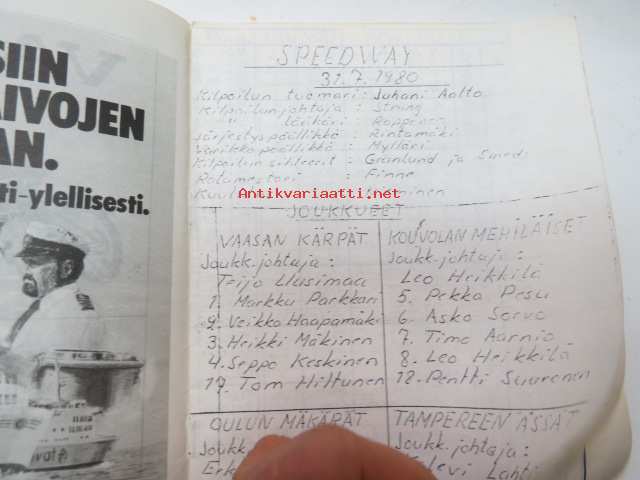 SIIN
IVOJEN
AN.
ti-ylellisesti.
SPEEDWAY
31.7.1980
Kilpailun tuomari: Juhani Aalto
Kilpailunjohtaja: String
" lääkäri: Rapp
Järjestyspäällikkö: Rintamäki
Varikkopäällikkö: Mylläri
Kilpailin sihteerit: Granlund ja Smeds
Ratamestari: Finne
Antikvariaatti.net
JOUKKUEET
VAASAN KÄRPÄT
Joukk.johtaja:
Teijo Uusimaa
1. Markku Parkkari
2. Veikko Haapamäki
3. Heikki Mäkinen
4. Seppo Keskinen
17. Tom Hiltunen
KOUVOLAN MEHILÄISET
Joukk.johtaja:
Leo Heikkilä
5. Pekka Pesu
6. Asko Sarvo
7. Timo Aarnio
8. Leo Heikkilä
18. Pentti Suuronen
OULUN MÄKÄRÄT
Joukk
Erk
TAMPEREEN ÄSSÄT
Joukk.johtaja:
levi Lahti